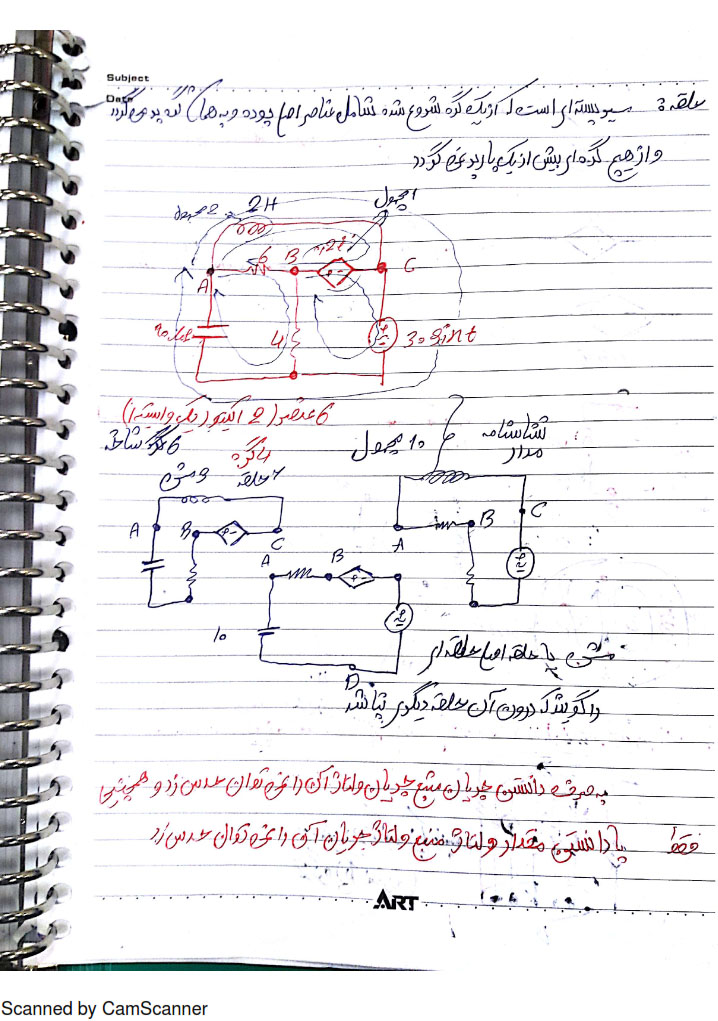 Subject
Date
حلقه: مسیر بسته ای است که از یک گره شروع شده شامل عناصر اصلی بوده و به همان گره بر می گردد
و از هیچ گره ای بیش از یک بار بر نمی گردد
2H
A
6
B
2i
C
4
30 sin t
6 عنصر (2 اکتیو (یکی وابسته))
4 گره
6 شاخه
7 حلقه
3 مش
10 مجهول
شناسنامه
مدار
A
B
C
A
B
C
A
B
10
D
مش یا حلقه اصلی حلقه ای
را گویند که درون آن حلقه دیگری نباشد
به صرف دانستن جریان منبع جریان ولتاژ آن را نمی توان حدس زد و همچنین
فقط با دانستن مقدار ولتاژ منبع ولتاژ جریان آن را نمی توان حدس زد
ART
Scanned by CamScanner